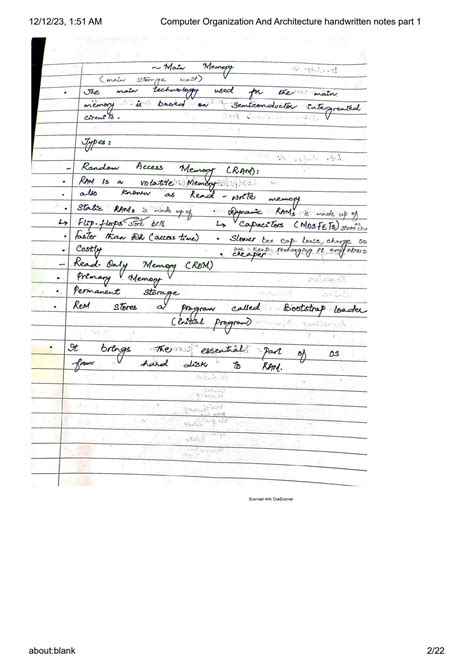 12/12/23, 1:51 AM Computer Organization And Architecture handwritten notes part 1
~ Main Memory
(main storage unit)
• The main technology used for the main
memory is based on semiconductor integrated
circuits.
Types:
- Random Access Memory (RAM):
• RAM is a volatile Memory
• also known as Read - write memory
• Static RAMs is made up of • Dynamic RAMs is made up of
↳ Flip-flops store bits ↳ Capacitors (MOSFETs)
• faster than DR (access time) • Slower cap. loose charge so
• Costly
• cheaper
- Read-Only Memory (ROM)
• Primary Memory
• Permanent Storage
• ROM stores a program called Bootstrap loader
(initial program)
• It brings the essential part of OS
from hard disk to RAM.
Scanned with CamScanner
about:blank 2/22